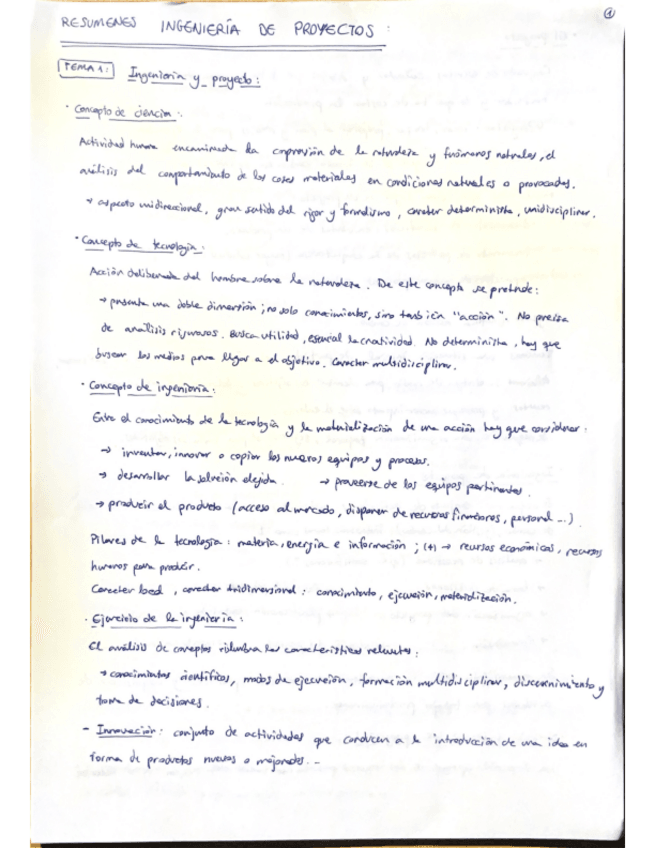 ①
RESUMENES INGENIERÍA DE PROYECTOS:
TEMA 1: Ingeniería y proyecto:
· Concepto de ciencia:
Actividad humana encaminada la comprensión de la naturaleza y fenómenos naturales, el
análisis del comportamiento de las cosas materiales en condiciones naturales o provocadas.
→ aspecto unidireccional, gran sentido del rigor y formalismo, carácter determinista, unidisciplinar.
· Concepto de tecnología:
Acción deliberada del hombre sobre la naturaleza. De este concepto se pretende:
→ presenta una doble dimensión; no solo conocimientos, sino también "acción". No precisa
de análisis rigurosos. Busca utilidad, esencial la creatividad. No determinista, hay que
buscar los medios para llegar a el objetivo. Carácter multidisciplinar.
· Concepto de ingeniería:
Entre el conocimiento de la tecnología y la materialización de una acción hay que considerar:
→ inventar, innovar o copiar los nuevos equipos y procesos.
→ desarrollar la solución elegida. → proveerse de los equipos pertinentes.
→ producir el producto (acceso al mercado, disponer de recursos financieros, personal ...).
Pilares de la tecnología: materia, energía e información; (+) → recursos económicos, recursos
humanos para producir.
Carácter local, carácter tridimensional: conocimiento, ejecución, materialización.
· Ejercicio de la ingeniería:
El análisis de conceptos vislumbra las características relevantes:
→ conocimientos científicos, modos de ejecución, formación multidisciplinar, discernimiento y
toma de decisiones.
- Innovación: conjunto de actividades que conducen a la introducción de una idea en
forma de productos nuevos o mejorados. -